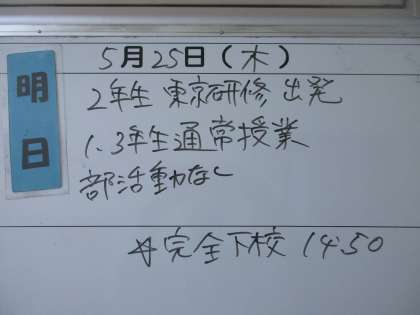 明日
5月25日(木)
2年生 東京研修 出発
1.3年生通常授業
部活動なし
☆完全下校 14:50